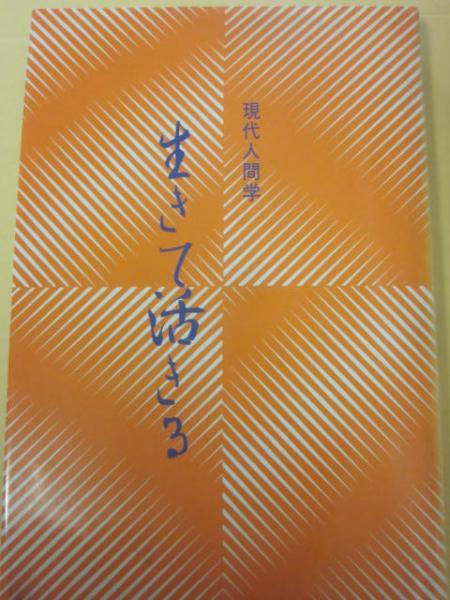 現代人間学
生きて活きる